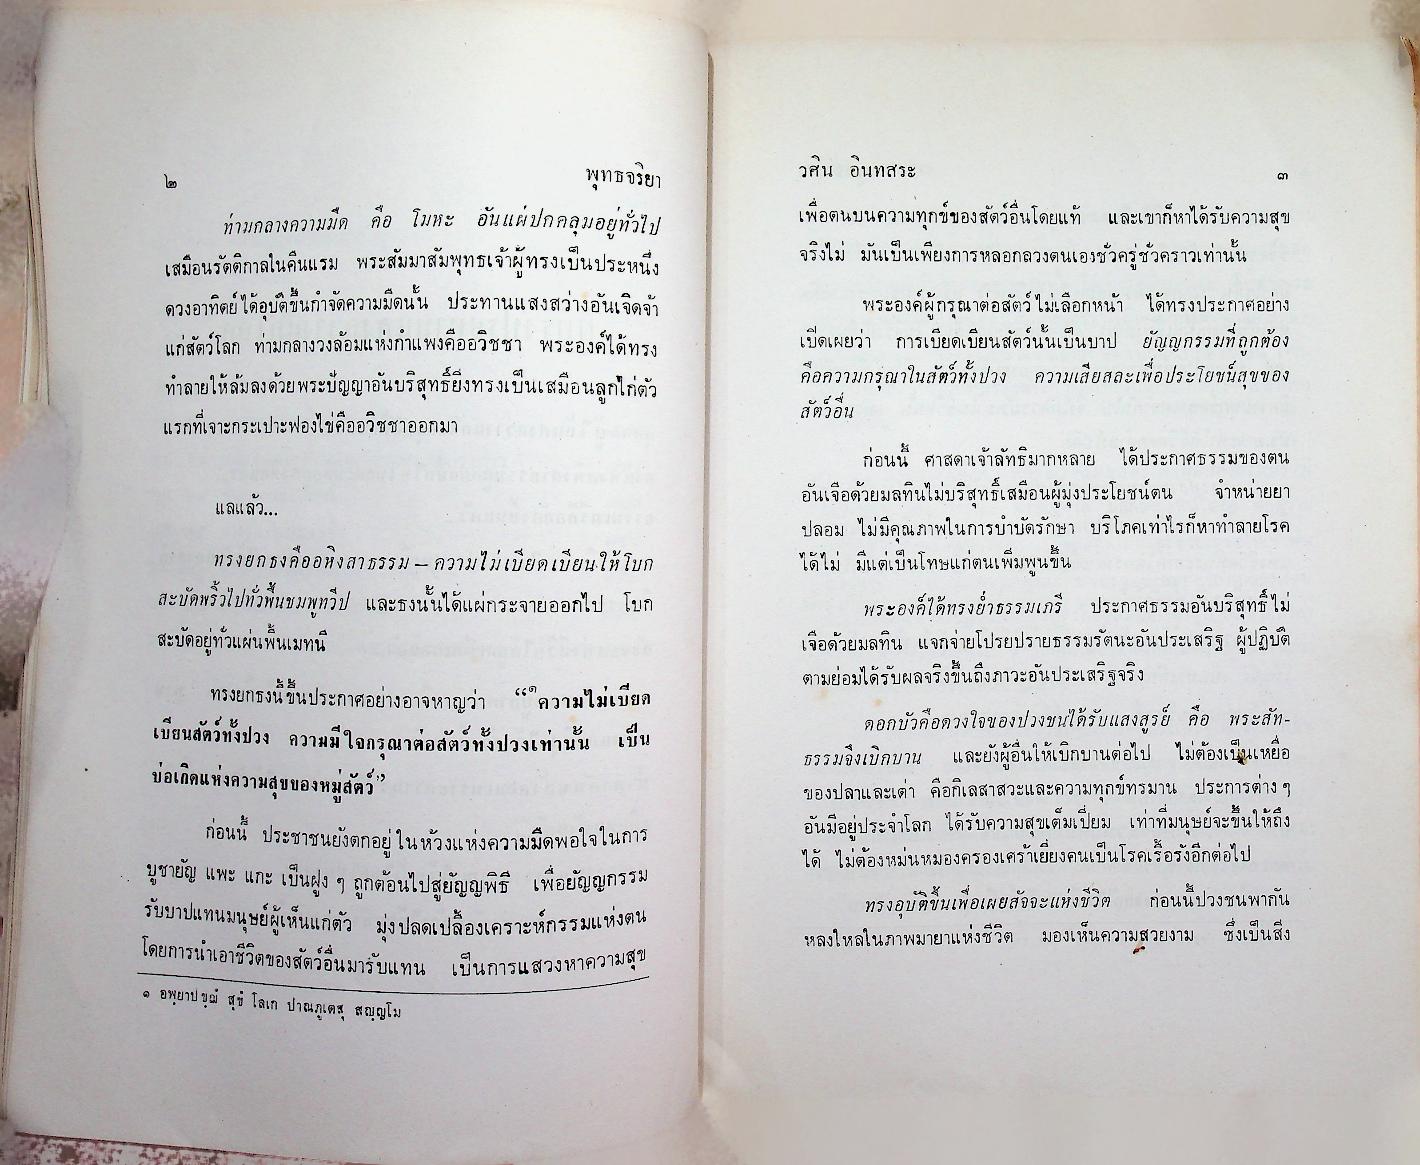 ๒ พุทธจริยา
ท่ามกลางความมืด คือ โมหะ อันแผ่ปกคลุมอยู่ทั่วไป
เสมือนรัตติกาลในคืนแรม พระสัมมาสัมพุทธเจ้าผู้ทรงเป็นประหนึ่ง
ดวงอาทิตย์ได้อุบัติขึ้นกำจัดความมืดนั้น ประทานแสงสว่างอันเจิดจ้า
แก่สัตว์โลก ท่ามกลางวงล้อมแห่งกำแพงคืออวิชชา พระองค์ได้ทรง
ทำลายให้ล้มลงด้วยพระปัญญาอันบริสุทธิ์ยิ่งทรงเป็นเสมือนลูกไก่ตัว
แรกที่เจาะกระเปาะฟองไข่คืออวิชชาออกมา
แลแล้ว...
ทรงยกธงคืออหิงสาธรรม – ความไม่เบียดเบียนให้โบก
สะบัดพริ้วไปทั่วพื้นชมพูทวีป และธงนั้นได้แผ่กระจายออกไป โบก
สะบัดอยู่ทั่วแผ่นพื้นเมทนี
ทรงยกธงนี้ขึ้นประกาศอย่างอาจหาญว่า “๑ความไม่เบียด
เบียนสัตว์ทั้งปวง ความมีใจกรุณาต่อสัตว์ทั้งปวงเท่านั้น เป็น
บ่อเกิดแห่งความสุขของหมู่สัตว์”
ก่อนนี้ ประชาชนยังตกอยู่ในห้วงแห่งความมืดพอใจในการ
บูชายัญ แพะ แกะ เป็นฝูง ๆ ถูกต้อนไปสู่ยัญญพิธี เพื่อยัญญกรรม
รับบาปแทนมนุษย์ผู้เห็นแก่ตัว มุ่งปลดเปลื้องเคราะห์กรรมแห่งตน
โดยการนำเอาชีวิตของสัตว์อื่นมารับแทน เป็นการแสวงหาความสุข
๑ อพฺยาปชฺฌํ สุขํ โลเก ปาณภูเตสุ สญฺญโม
วศิน อินทสระ ๓
เพื่อตนบนความทุกข์ของสัตว์อื่นโดยแท้ และเขาก็หาได้รับความสุข
จริงไม่ มันเป็นเพียงการหลอกลวงตนเองชั่วครู่ชั่วคราวเท่านั้น
พระองค์ผู้กรุณาต่อสัตว์ไม่เลือกหน้า ได้ทรงประกาศอย่าง
เปิดเผยว่า การเบียดเบียนสัตว์นั้นเป็นบาป ยัญญกรรมที่ถูกต้อง
คือความกรุณาในสัตว์ทั้งปวง ความเสียสละเพื่อประโยชน์สุขของ
สัตว์อื่น
ก่อนนี้ ศาสดาเจ้าลัทธิมากหลาย ได้ประกาศธรรมของตน
อันเจือด้วยมลทินไม่บริสุทธิ์เสมือนผู้มุ่งประโยชน์ตน จำหน่ายยา
ปลอม ไม่มีคุณภาพในการบำบัดรักษา บริโภคเท่าไรก็หาทำลายโรค
ได้ไม่ มีแต่เป็นโทษแก่ตนเพิ่มพูนขึ้น
พระองค์ได้ทรงย่ำธรรมเภรี ประกาศธรรมอันบริสุทธิ์ไม่
เจือด้วยมลทิน แจกจ่ายโปรยปรายธรรมรัตนะอันประเสริฐ ผู้ปฏิบัติ
ตามย่อมได้รับผลจริงขึ้นถึงภาวะอันประเสริฐจริง
ดอกบัวคือดวงใจของปวงชนได้รับแสงสูรย์ คือ พระสัท-
ธรรมจึงเบิกบาน และยังผู้อื่นให้เบิกบานต่อไป ไม่ต้องเป็นเหยื่อ
ของปลาและเต่า คือกิเลสาสวะและความทุกข์ทรมาน ประการต่าง ๆ
อันมีอยู่ประจำโลก ได้รับความสุขเต็มเปี่ยม เท่าที่มนุษย์จะขึ้นให้ถึง
ได้ ไม่ต้องหม่นหมองครองเศร้าเยี่ยงคนเป็นโรคเรื้อรังอีกต่อไป
ทรงอุบัติขึ้นเพื่อเผยสัจจะแห่งชีวิต ก่อนนี้ปวงชนพากัน
หลงใหลในภาพมายาแห่งชีวิต มองเห็นความสวยงาม ซึ่งเป็นสิ่ง